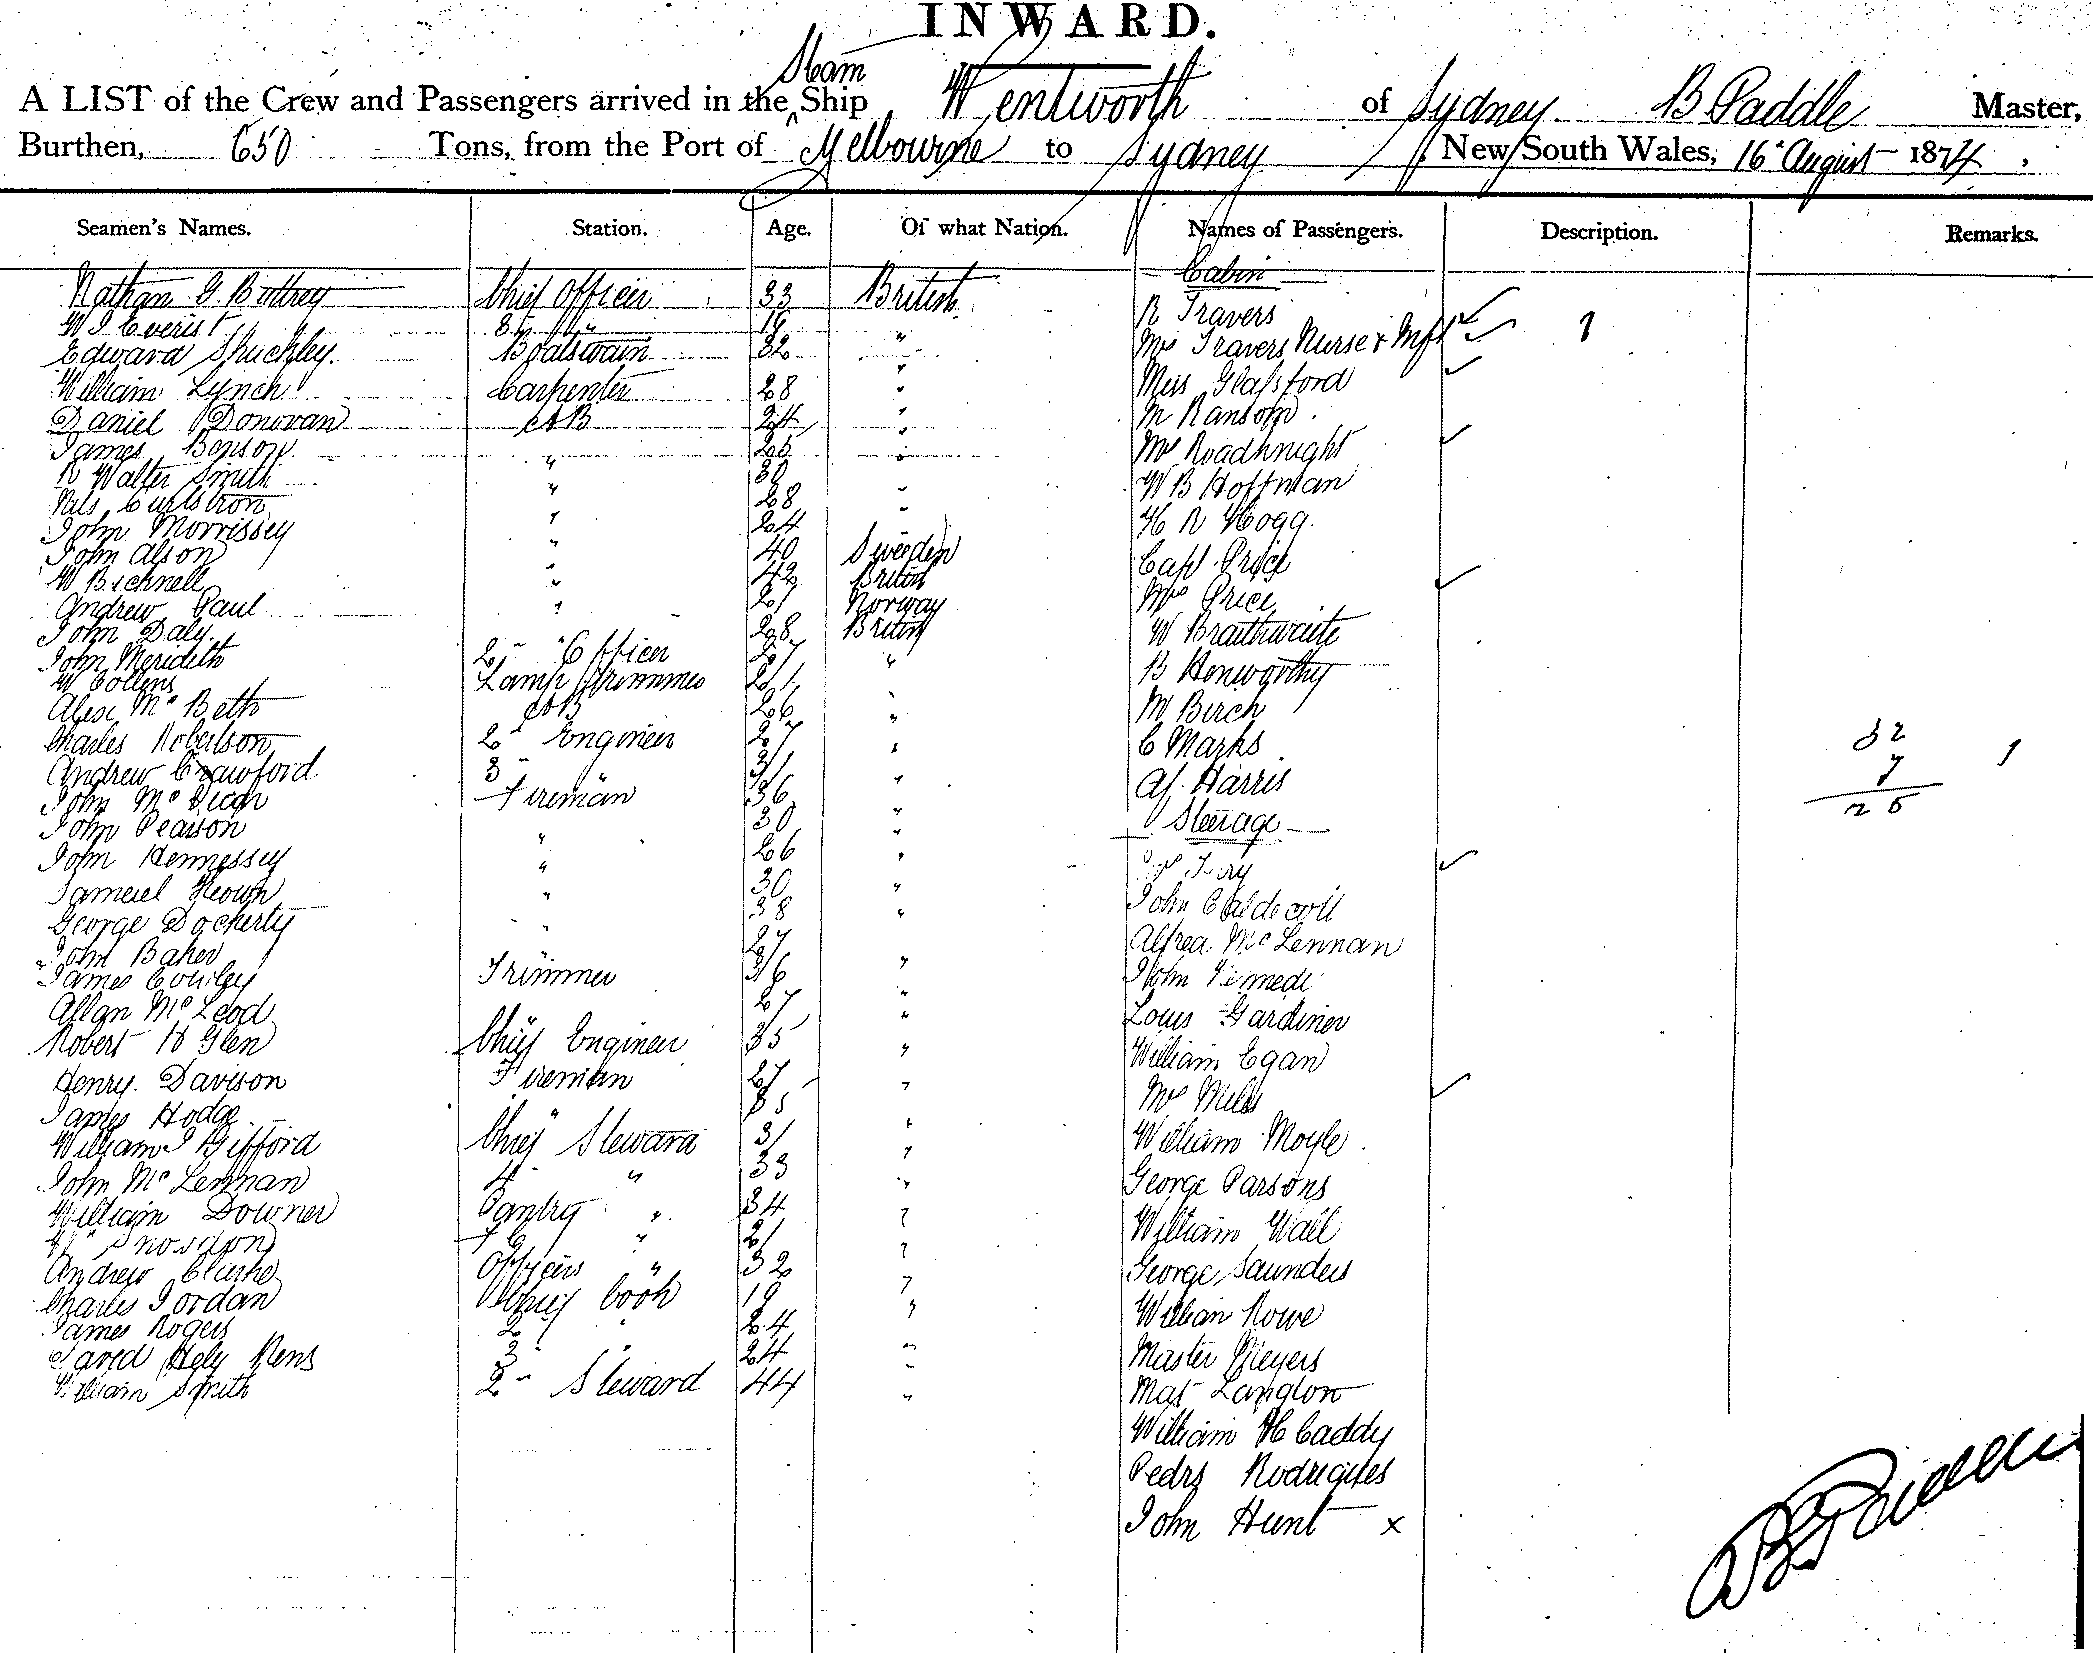 INWARD.
A LIST of the Crew and Passengers arrived in the Steam Ship Wentworth of Sydney B Paddle Master,
Burthen, 650 Tons, from the Port of Melbourne to Sydney New South Wales, 16 August 1874,
Seamen's Names. Station. Age. Of what Nation. Names of Passengers. Description. Remarks.
Cabin
Nathan G. Buttrey Chief Officer 33 British R Travers
W I Everist 3 " 19 Mrs Travers Nurse & Inft 1
Edward Shuckley. Boatswain 32 "
William Lynch Carpenter 28 " Miss Glassford
Daniel Donovan AB 24 " M Ransom
James Benson 25 " Mrs Roadknight
R Walter Smith " 30 " W B Hoffman
Nils Curlstron " 28 "
John Morrissey " 24 H R Hogg.
John Alson " 40 Sweeden Capt Price
W Bicknell " 42 British
Andrew Paul " 27 Norway Mrs Price
John Daly. " 28 British W Braithwaite
John Merideth 2nd Officer 27 "
W Collins Lamp Trimmer 21 " B Henworthy
Alex Mc Beth AB 26 " M Birch
Charles Robertson 2nd Engineer 27 " C Marks 32
Andrew Crawford 3 " 31 " 7 1
John Mc Fireman 36 " Af. Harris 25
John Pearson " 30 " Steerage
John Hennessey " 26 "
Samuel Keown " 30 " John Caldecott
George Docherty " 38 "
John Baker 27 Alfred Mc Lennan
James Trimmer 36 " John
Allan Mc Leod 27 " Louis Gardiner
Robert H Glen Chief Engineer 35 " William Egan
Henry. Davison Fireman 27 " Mrs Mills
James Hodge " 35 "
William I Gifford Chief Steward 31 " William Moyle
John Mc Lennan 4 " 33 " George Parsons
William Downer Pantry " 34 " William Wall
Wm Snowdon F C " 21 "
Andrew Clarke Officers " 32 " George Saunders
Charles Jordan Chief Cook 19 " William Rowe
James Rogers 2 " 24 "
Jared Hely Rens 3 " 24 " Master Meyers
William Smith 2nd Steward 44 " Mat Langton
William H Caddy
Pedro Rodrigues
John Hunt x